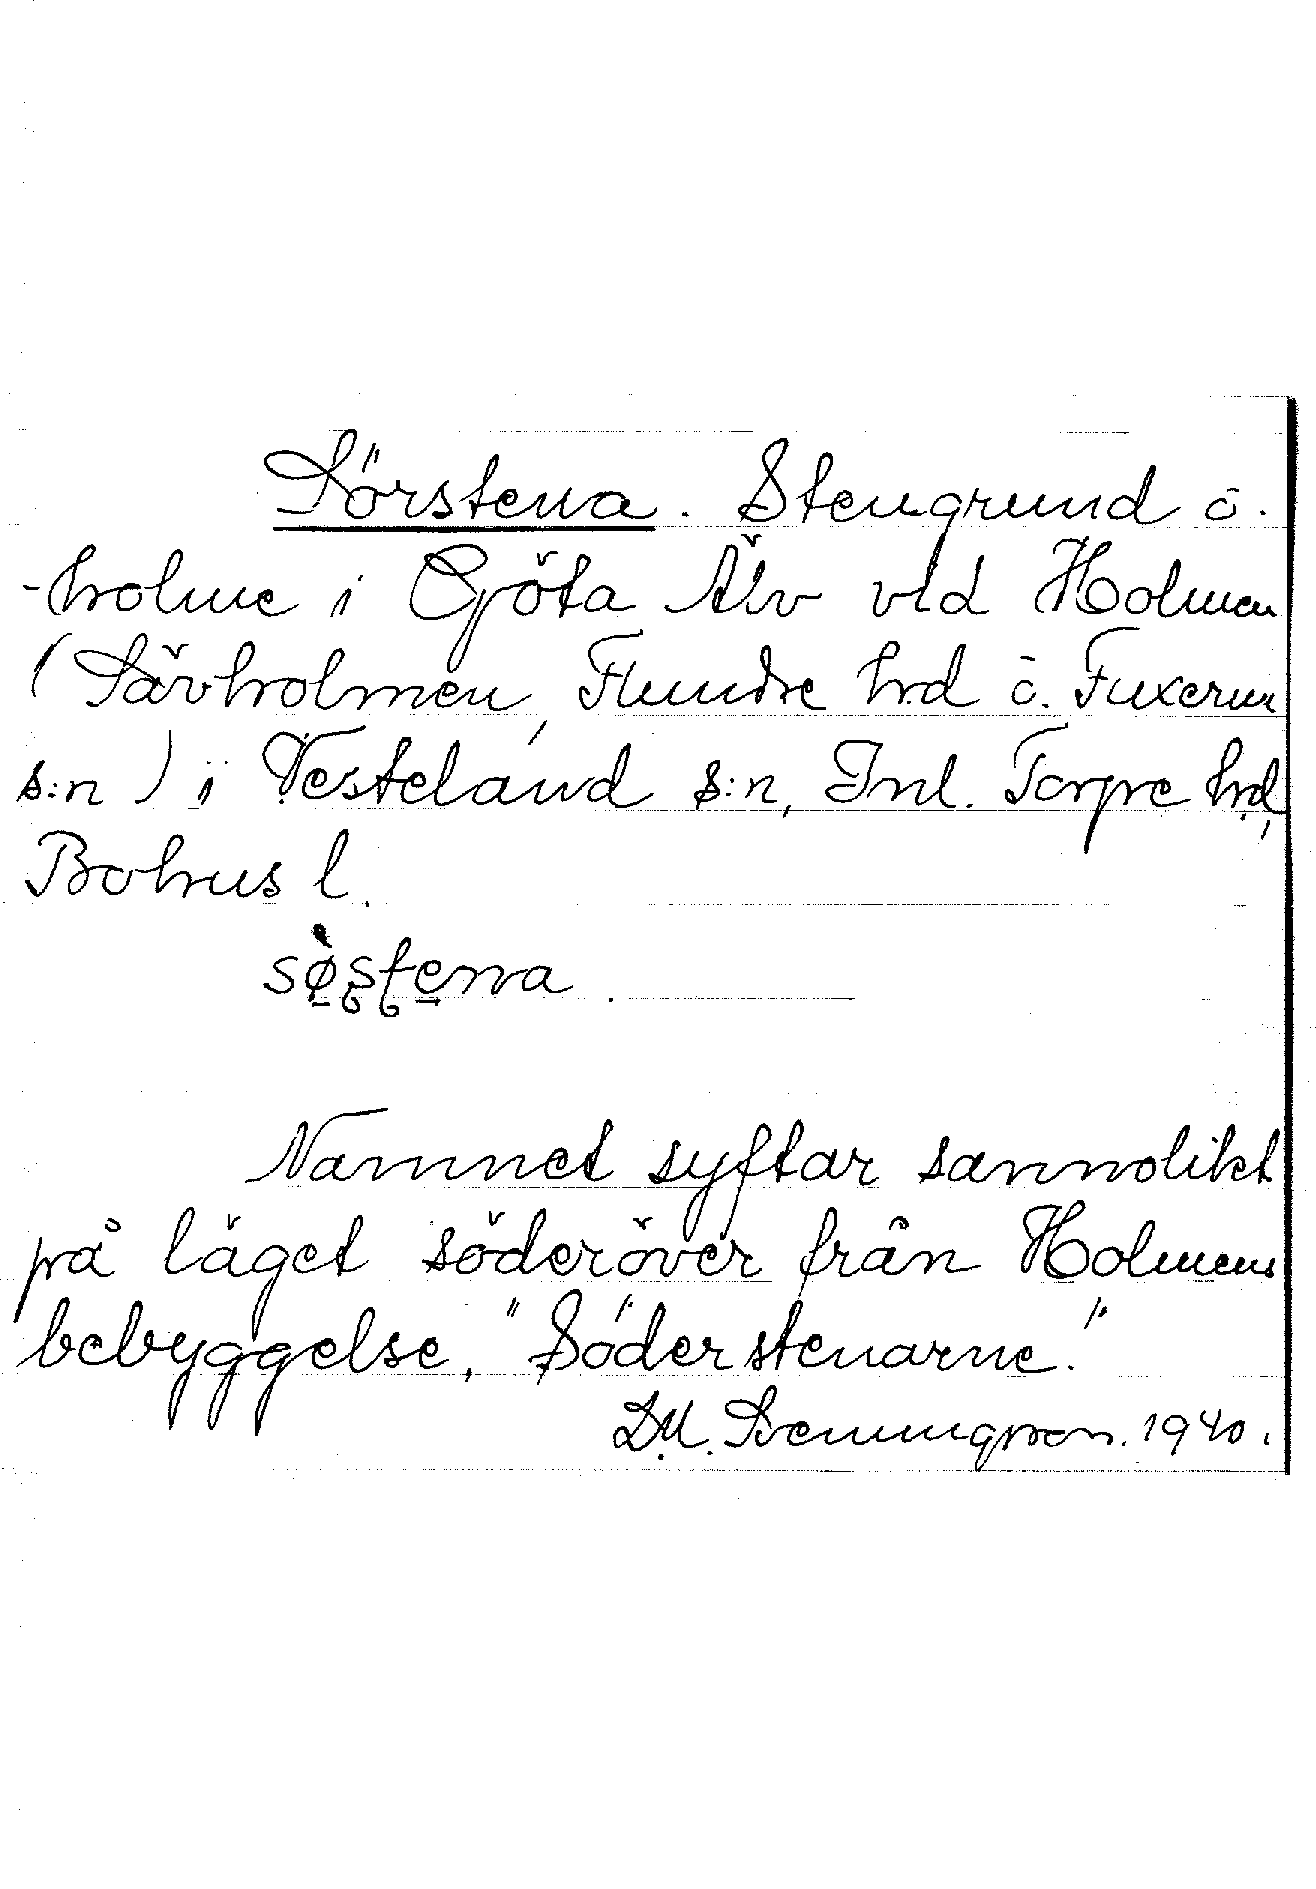 Sörstena. Stengrund o.
-holme i Göta Älv vid Holmen
(Sävholmen, Flundre hrd o. Fuxerna
s:n) i Västerland s:n, Inl. Torpe hrd,
Bohus l.
sø̀ṣṭena.
Namnet syftar sannolikt
på läget söderöver från Holmens
bebyggelse, "Söderstenarne."
D.M. 1940.